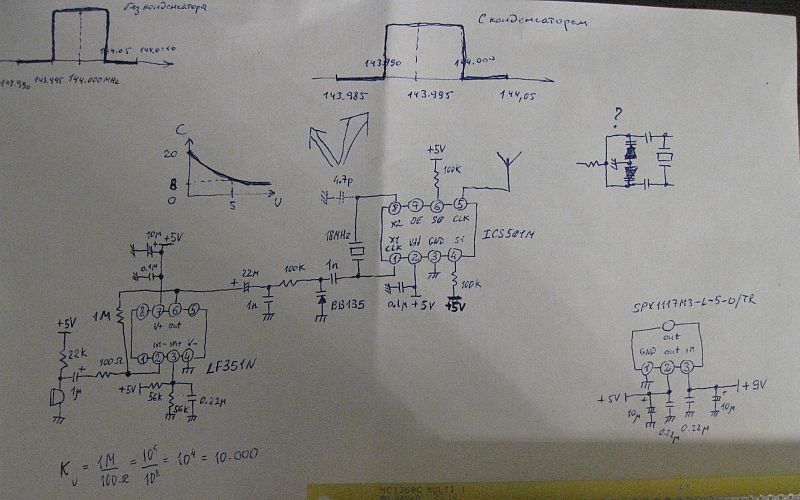 Без конденсатора
144.05
143.995
144.000MHz
С конденсатором
143.990
144.000
143.985
143.995
144,05
C
20
8
0
5
U
?
+5V
100K
4.7p
8
7
6
5
X2
OE
S0
CLK
ICS501M
18MHz
X1
CLK
GND
S1
1
2
3
4
1n
0.1μ
+5V
100K
+5V
BB135
100K
22μ
1n
10μ
+5V
0.1μ
1M
8
7
6
5
V+
out
in-
in+
V-
1
2
3
4
LF351N
+5V
22K
100Ω
1μ
+5V
56K
56K
0.22μ
SPX1117M3-L-5-0/TR
out
GND
out
in
1
2
3
+5V
+9V
10μ
0.22μ
0.22μ
10μ
K_U = 1M/100Ω = 10⁶/10² = 10⁴ = 10.000
MC1368C MULTI 1